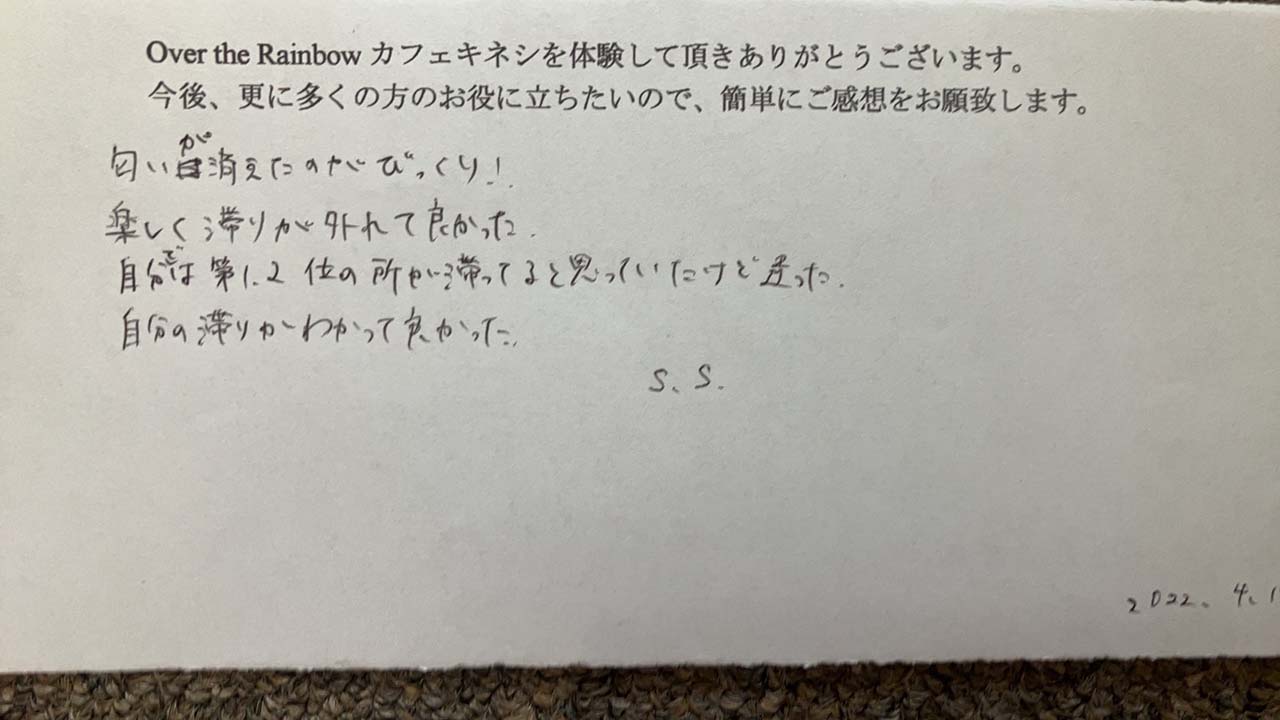 Over the Rainbow カフェキネシを体験して頂きありがとうございます。
今後、更に多くの方のお役に立ちたいので、簡単にご感想をお願致します。
匂いが消えたのがびっくり!
楽しく滞りが外れて良かった.
自分では第1.2位の所が滞ってると思っていたけど違った.
自分の滞りがわかって良かった.
S. S.
2022. 4. 1